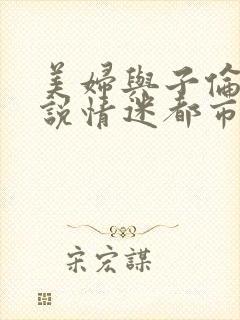 美婦與子倫
説情迷都市
宋宏謀